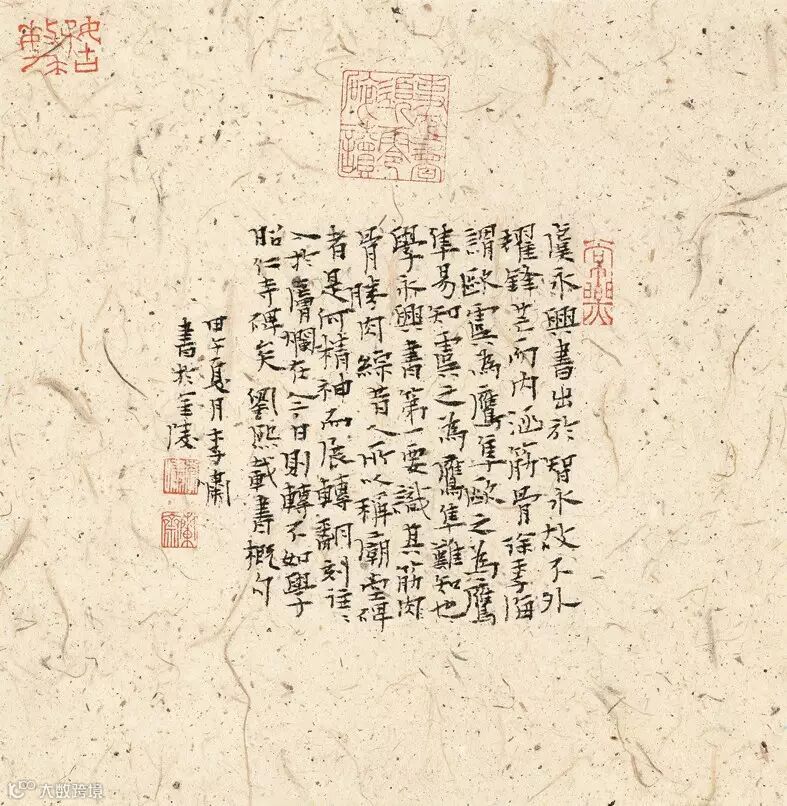 虞永興書出於智永故不外
耀鋒芒而內涵筋骨徐季海
謂歐虞為鷹隼歐之為鷹
隼易知虞之為鷹隼難知也
學永興書第一要識其筋肉
骨勝肉綜昔人所以稱廟堂碑
者是何精神而展轉翻刻往〻
入於膚爛在今日則轉不如學
昭仁寺碑矣 劉熙載書概句
甲午夏月李嘯
書於金陵
大数跨境